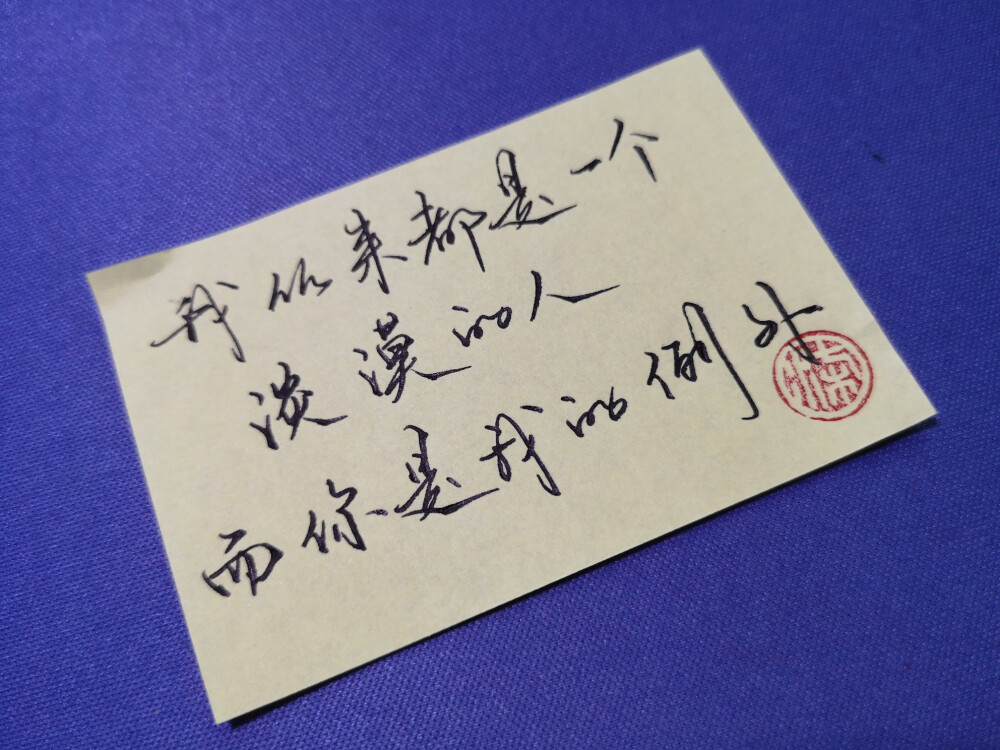 我从来都是一个
淡漠的人
而你是我的例外